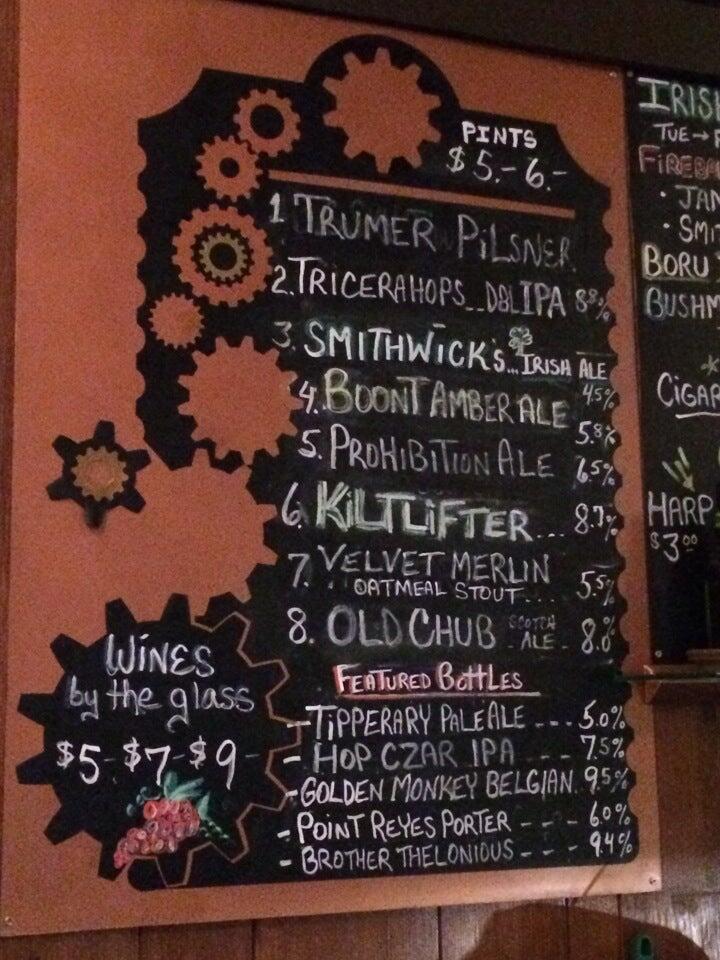 PINTS
$5.-6.-
1 TRUMER PILSNER
2. TRICERAHOPS...DBL IPA 8.8%
3. SMITHWICK'S... IRISH ALE
4.5%
4. BOONT AMBER ALE
5.8%
5. PROHIBITION ALE
6.5%
6. KILTLIFTER... 8.7%
7. VELVET MERLIN
OATMEAL STOUT.... 5.5%
8. OLD CHUB SCOTCH ALE 8.0%
FEATURED BOTTLES
- TIPPERARY PALE ALE --- 5.0%
- HOP CZAR IPA ---- 7.5%
- GOLDEN MONKEY BELGIAN. 9.5%
- POINT REYES PORTER --- 6.0%
- BROTHER THELONIOUS --- 9.4%
WINES
by the glass
$5-$7-$9-
IRISH
TUE →
FIREBA
• JAN
• SMI
BORU
BUSHM
CIGAR
HARP
$3.00